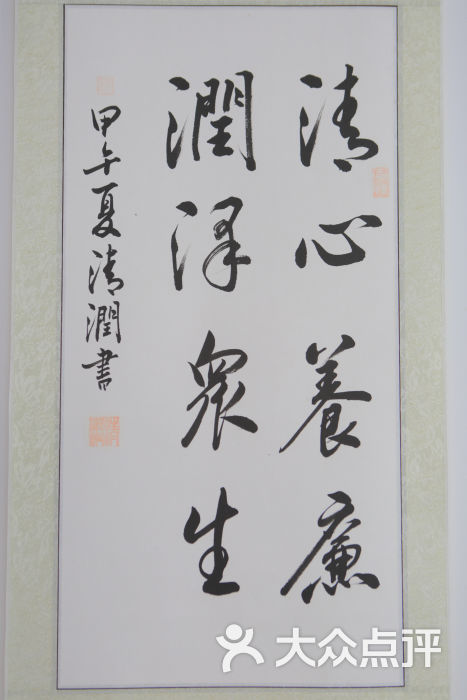 清心養廉
潤澤眾生
甲午夏清潤書
大众点评